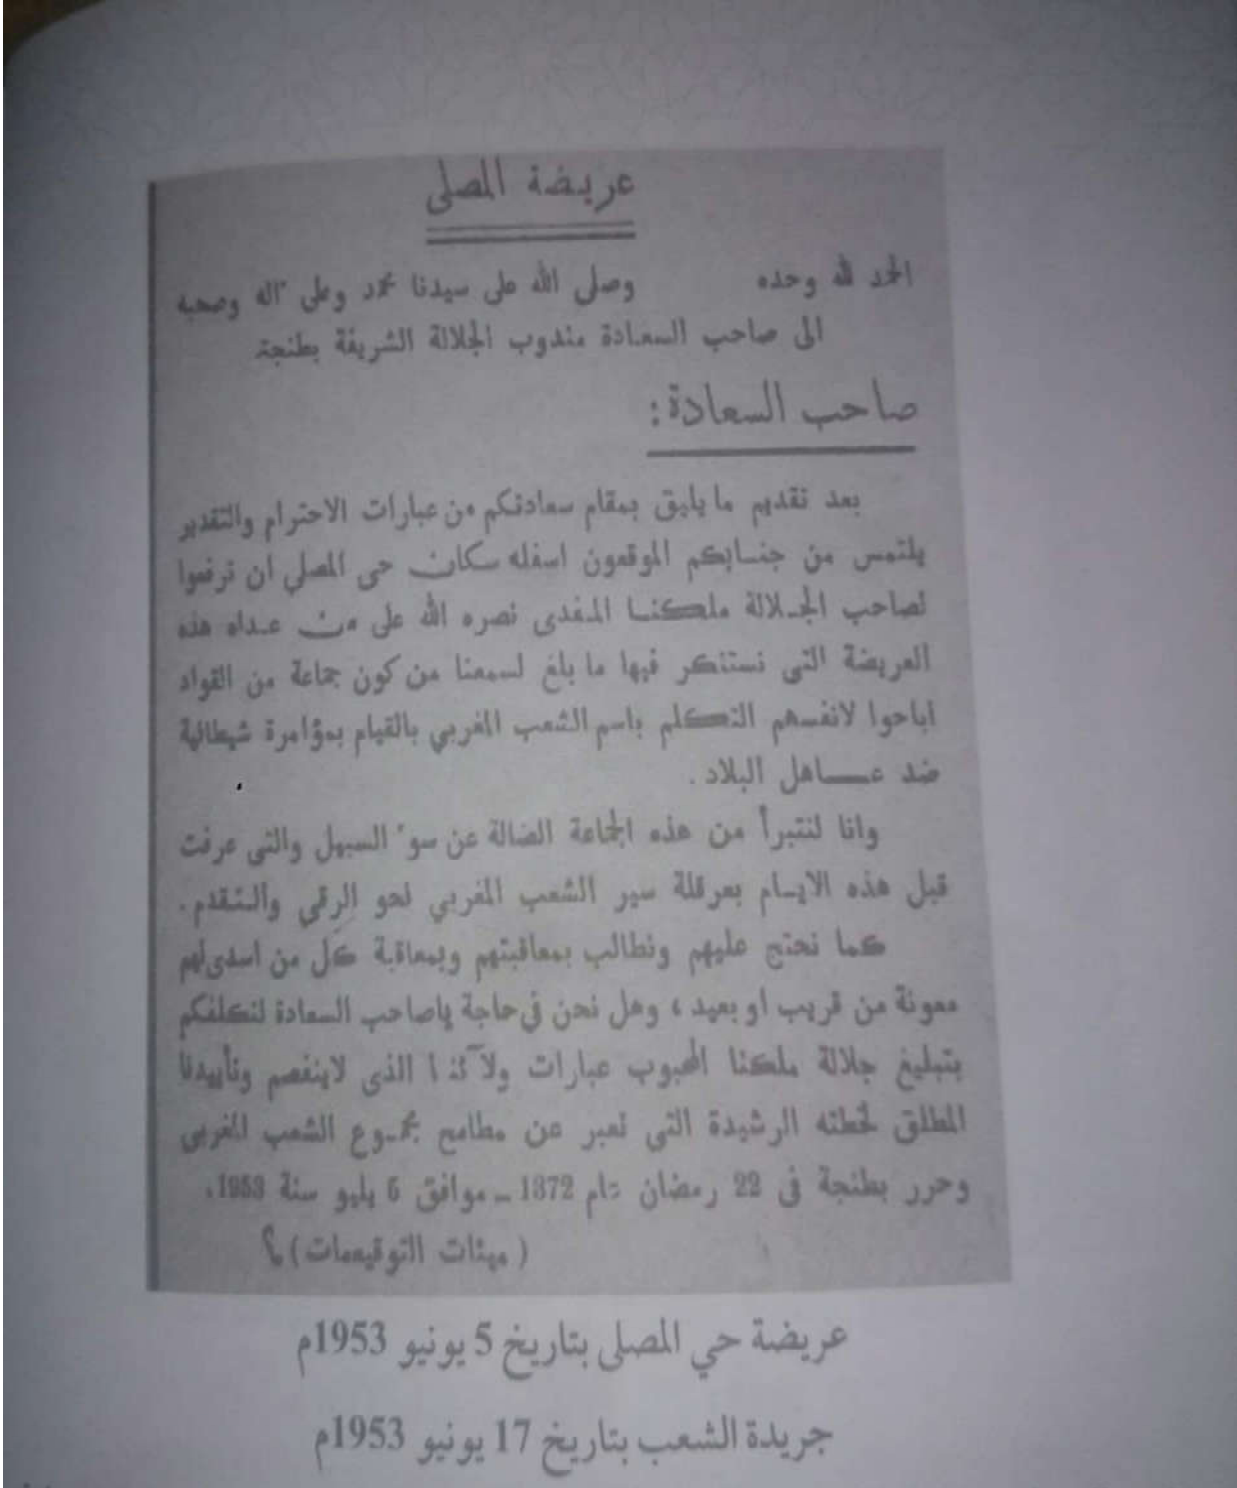 عريضة المصلى
الحمد لله وحده وصلى الله على سيدنا محمد وعلى آله وصحبه
الى صاحب السعادة مندوب الجلالة الشريفة بطنجة
صاحب السعادة:
بعد تقديم ما يليق بمقام سعادتكم من عبارات الاحترام والتقدير
يلتمس من جنابكم الموقعون اسفله سكان حى المصلي ان ترفعوا
لصاحب الجلالة ملكنا المفدى نصره الله على من عداه هذه
العريضة التى نستنكر فيها ما بلغ لسمعنا من كون جماعة من القواد
اباحوا لانفسهم التكلم باسم الشعب المغربي بالقيام بمؤامرة شيطانية
ضد عاهل البلاد .
وانا لنتبرأ من هذه الجماعة الضالة عن سوء السبيل والتى عرفت
قبل هذه الايام بعرقلة سير الشعب المغربي نحو الرقي والتقدم .
كما نحتج عليهم ونطالب بمعاقبتهم وبمعاقبة كل من اسدى لهم
معونة من قريب او بعيد ، وهل نحن في حاجة ياصاحب السعادة لنكلفكم
بتبليغ جلالة ملكنا المحبوب عبارات ولآئنا الذى لاينفصم وتأييدنا
المطلق لخطته الرشيدة التي تعبر عن مطامح مجموع الشعب المغربى
وحرر بطنجة فى 22 رمضان عام 1372 ــ موافق 5 يليو سنة 1953 .
( ميئات التوقيعات ) ؟
عريضة حي المصلى بتاريخ 5 يونيو 1953م
جريدة الشعب بتاريخ 17 يونيو 1953م